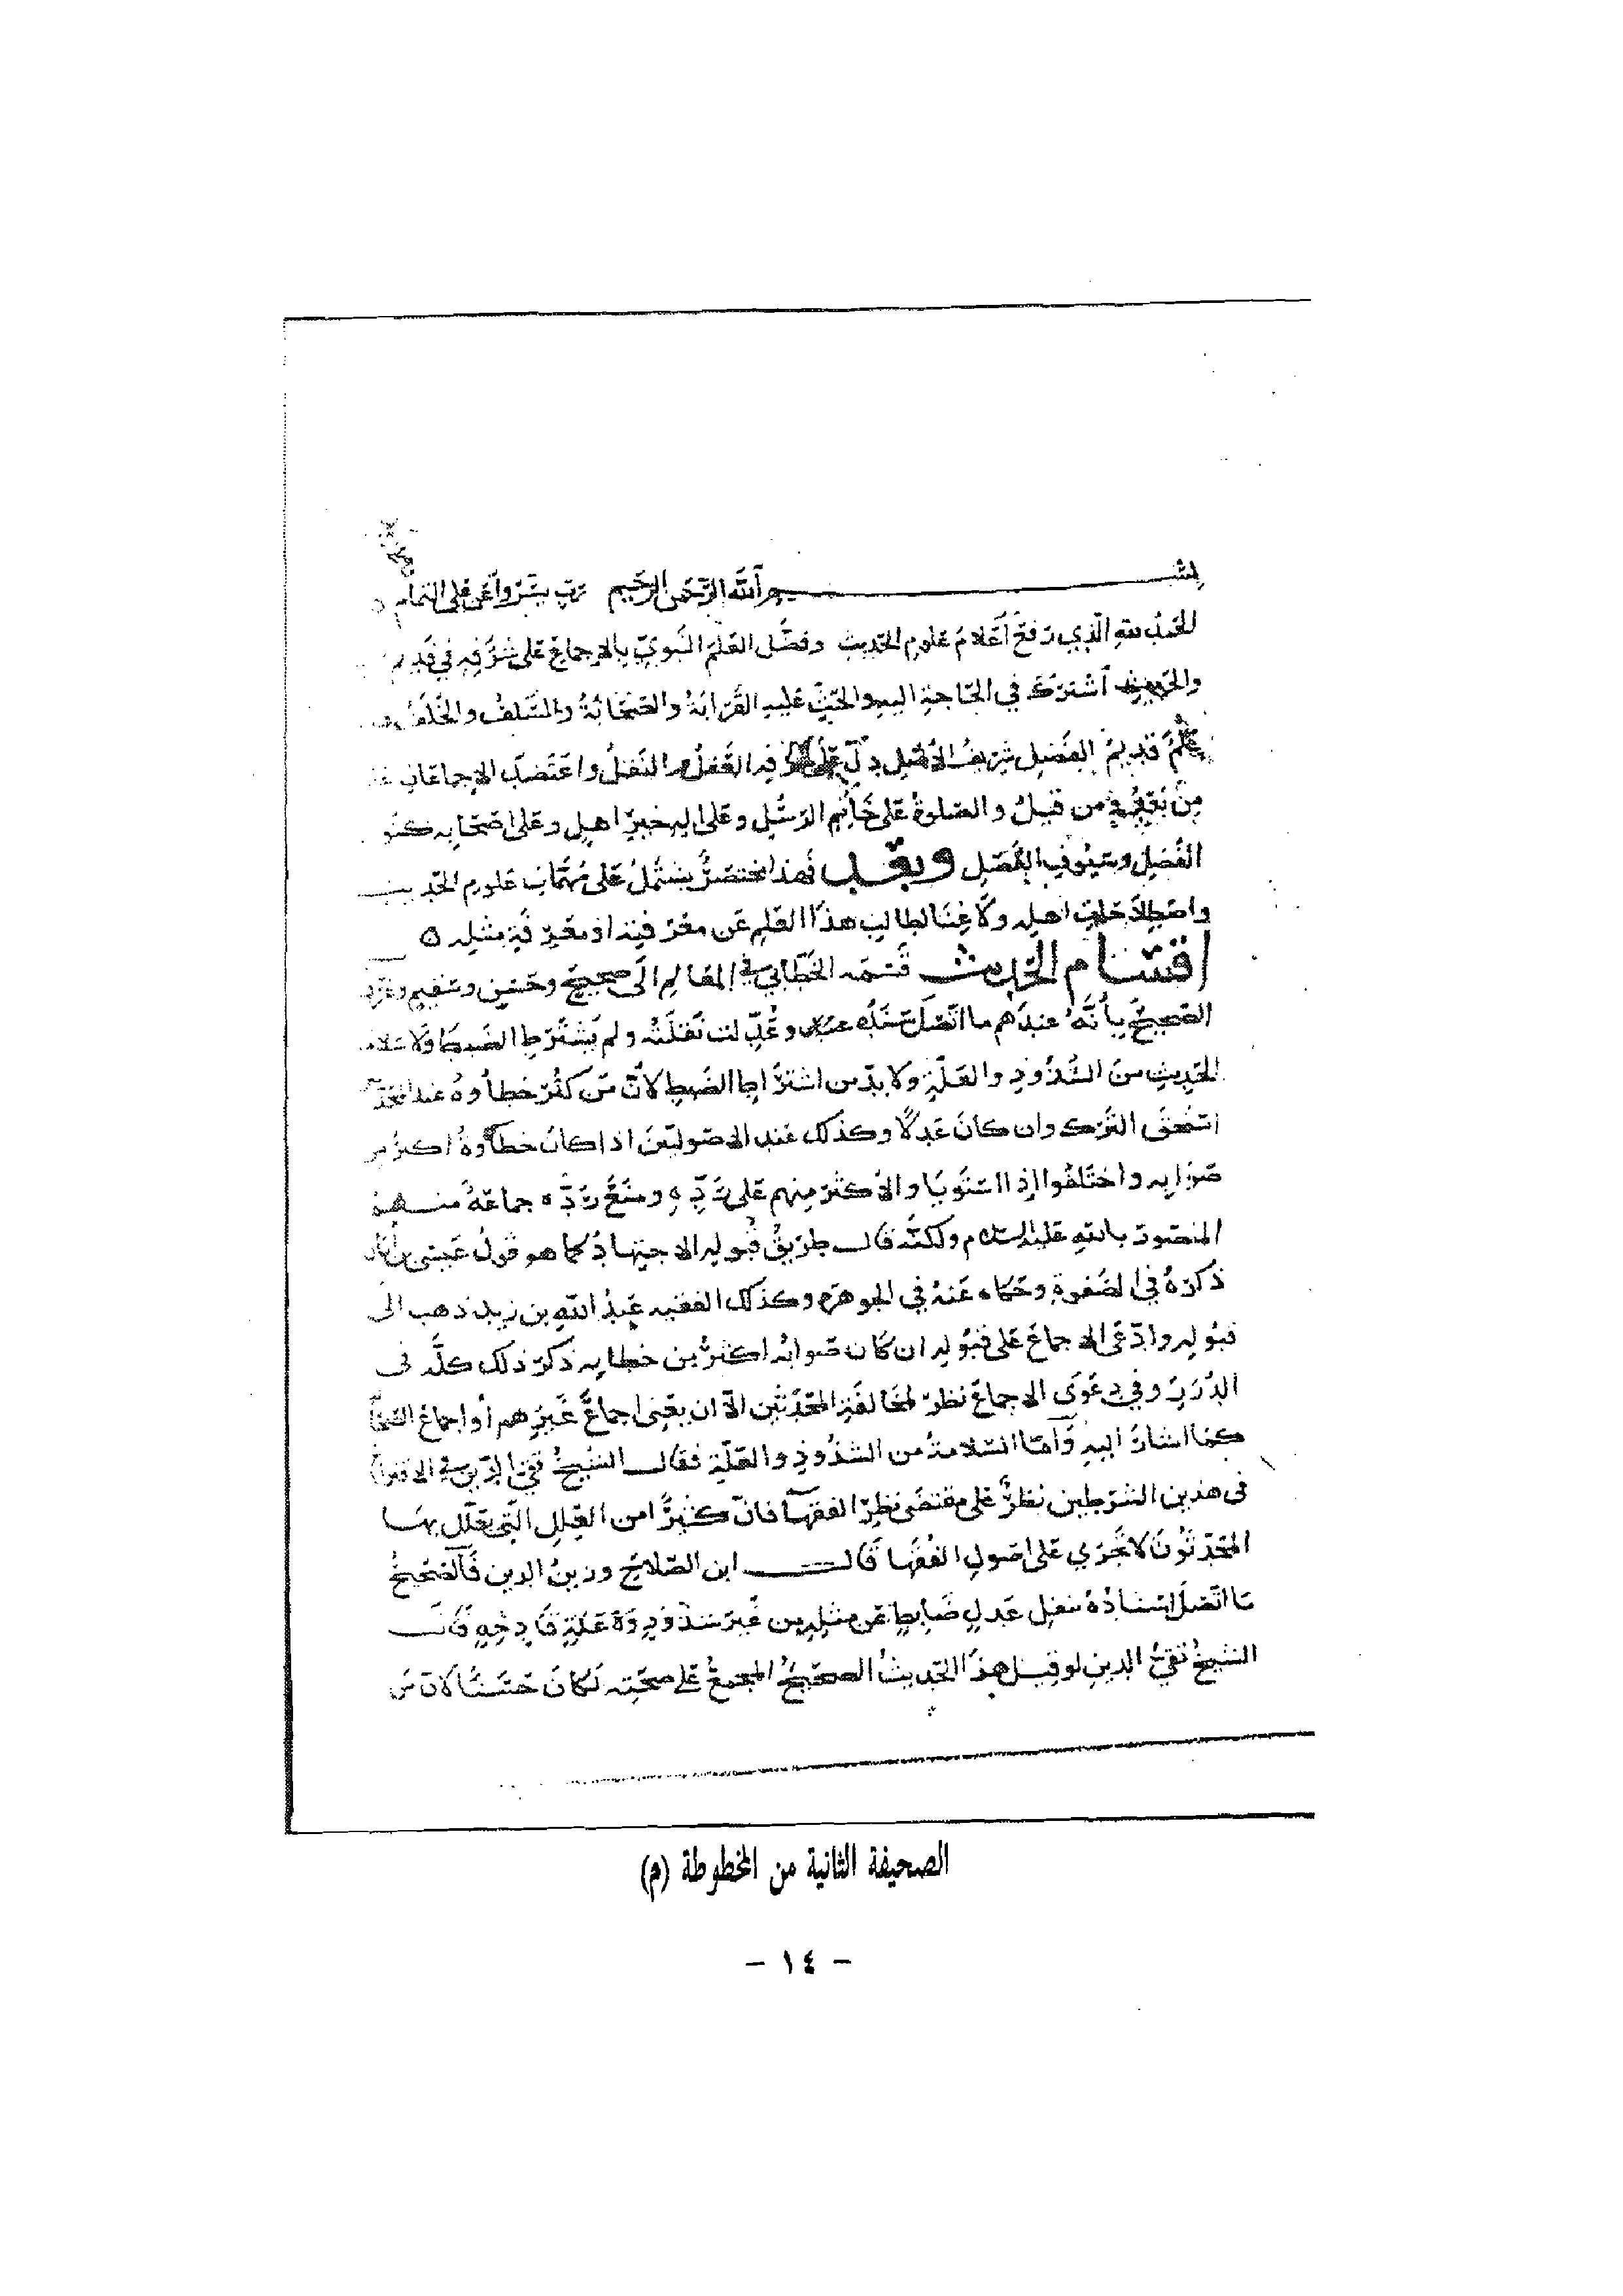 بسم آلله الرحمن الرحيم رب يسر وأعن على التمام
الحمد لله الذي رفع أعلام علوم الحديث وفضل العلم النبوي بالإجماع على شرفه في قديم
والحديث اشترك في الحاجة إليه والحث عليه القرابة والصحابة والسلف والخلف
علم قديم الفضل شريف الأصل دل على العقل والنقل واعتضد الإجماعات
من بعد ومن قبل والصلوة على خاتم الرسل وعلى اله خير اهل وعلى اصحابه
الفضل وسيوف الفصل وبعد فهذا مختصر يشتمل على مهمات علوم الحديث
واصطلاحات اهله ولا غنا لطالب هذا العلم عن معرفته او معرفة مثله ه
اقسام الحديث قسمه الخطابي في المعالم الى صحيح وحسن وسقيم وعرف
الصحيح بأنه عندهم ما اتصل سنده وعدلت نقلته ولم يشترط الضبط ولا سلامة
الحديث من الشذوذ والعلة ولا بد من اشتراط الضبط لأن من كثر خطأوه عند المحد
استحق الترك وان كان عدلا وكذلك عند الاصوليين اذا كان خطأوه اكثر من
صوابه واختلفوا إذا استويا والأكثر منهم على رده ومنع رده جماعة منهم
المنصور بالله عليه السلام ولكنه قال طريق قبوله الاجتهاد كما هو قول عيسى بن أبان
ذكره في الصفوة وحكاه عنه في الجوهرة وكذلك الفقيه عبد الله بن زيد ذهب الى
قبوله وادعى الاجماع على قبوله ان كان صوابه اكثر من خطايه ذكر ذلك كله فى
الدرر وفي دعوى الاجماع نظر لمخالفة المحدثين الا ان يعني اجماع غيرهم أو اجماع الصحا
كما اشار اليه وأما السلامة من الشذوذ والعلة فقال الشيخ تقي الدين في الاقتراح
فى هذين الشرطين نظر على مقتضى نظر الفقهآ فان كثيرا من العلل التي يعلل بها
المحدثون لا تجري على اصول الفقها قال ابن الصلاح وزين الدين فالصحيح
ما اتصل اسناده بنقل عدل ضابط عن مثله من غير شذوذ وعلة قادحة قال
الشيخ تقي الدين لو قيل هذا الحديث الصحيح المجمع على صحته لكان حسنا لان من
الصحيفة الثانية من المخطوطة (م)
- ١٤ -